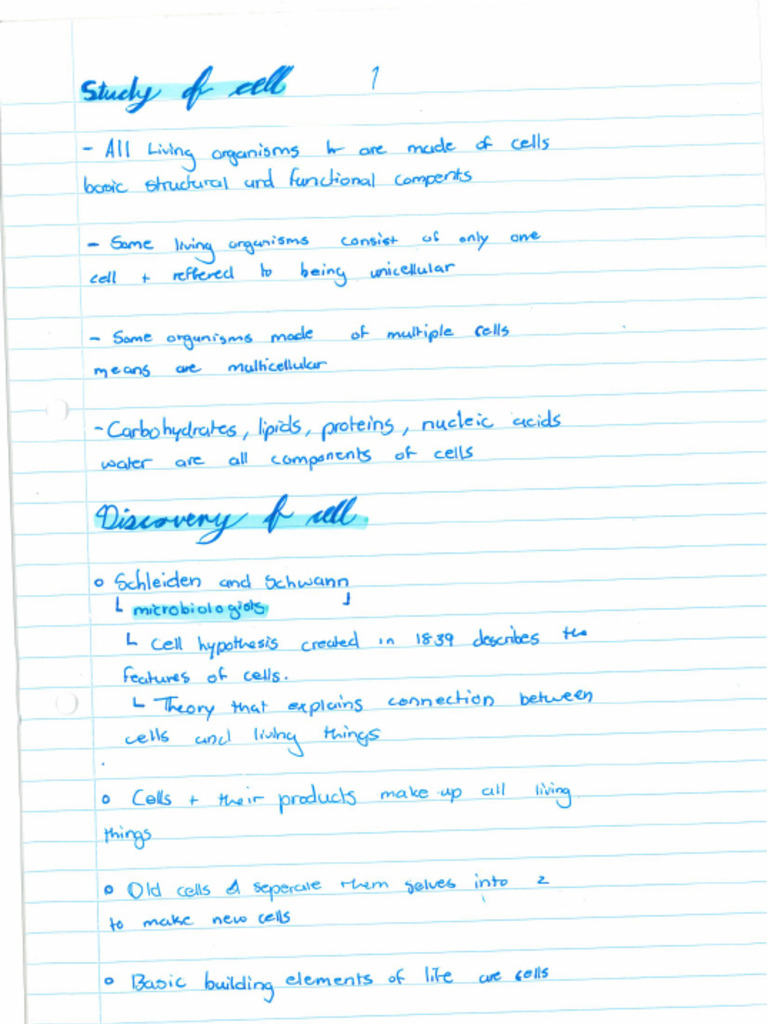 Study of cell 1
- All Living organisms are made of cells
basic structural and functional compents
- Some living organisms consist of only one
cell + reffered to being unicellular
- Some organisms made of multiple cells
means are multicellular
- Carbohydrates, lipids, proteins, nucleic acids
water are all components of cells
Discovery of cell.
o Schleiden and Schwann
└ microbiologists ┘
└ Cell hypothesis created in 1839 describes the
features of cells.
└ Theory that explains connection between
cells and living things
o Cells + their products make up all living
things
o Old cells seperate them selves into 2
to make new cells
o Basic building elements of life are cells